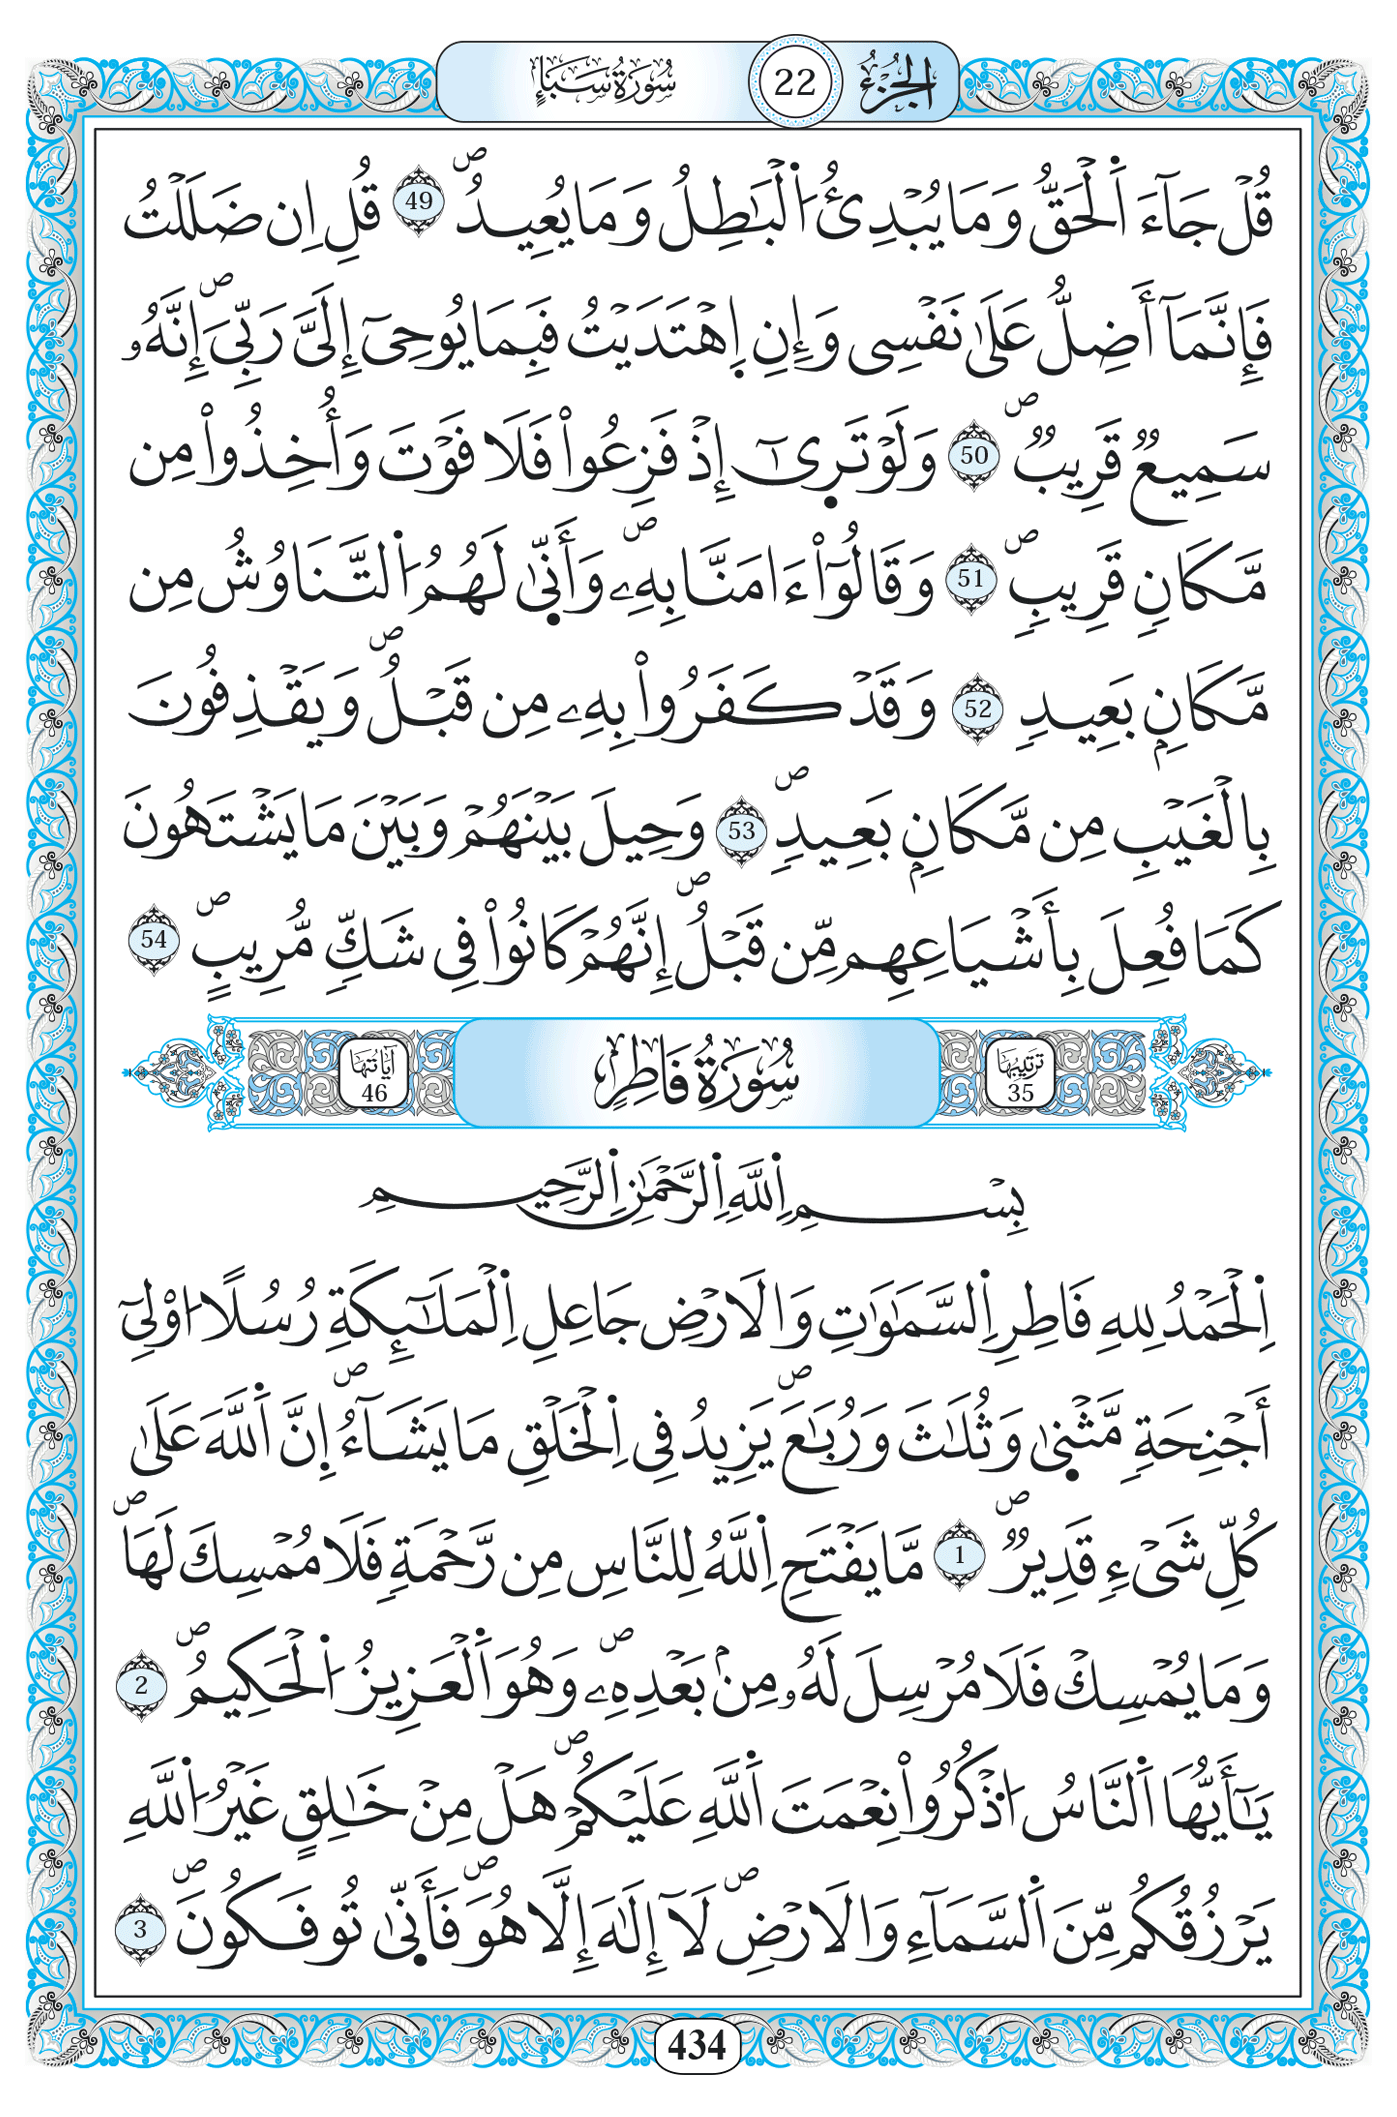 الجزء 22 سورة سبإ
قُلْ جَآءَ اَ۬لْحَقُّ وَمَا يُبْدِئُ اُ۬لْبَٰطِلُ وَمَا يُعِيدُۖ 49 قُلِ اِن ضَلَلْتُ
فَإِنَّمَآ أَضِلُّ عَلَىٰ نَفْسِى وَإِنِ اِ۪هْتَدَيْتُ فَبِمَا يُوحِىٓ إِلَىَّ رَبِّىَۖ إِنَّهُۥ
سَمِيعٞ قَرِيبٞۖ 50 وَلَوْ تَر۪ىٰٓ إِذْ فَزِعُواْ فَلَا فَوْتَ وَأُخِذُواْ مِن
مَّكَانٖ قَرِيبٖۖ 51 وَقَالُوٓاْ ءَامَنَّا بِهِۦۖ وَأَنّ۪ىٰ لَهُمُ اُ۬لتَّنَاوُشُ مِن
مَّكَانِۢ بَعِيدٖ 52 وَقَدْ كَفَرُواْ بِهِۦ مِن قَبْلُۖ وَيَقْذِفُونَ
بِالْغَيْبِ مِن مَّكَانِۢ بَعِيدٖۖ 53 وَحِيلَ بَيْنَهُمْ وَبَيْنَ مَا يَشْتَهُونَ
كَمَا فُعِلَ بِأَشْيَاعِهِم مِّن قَبْلُۖ إِنَّهُمْ كَانُواْ فِى شَكّٖ مُّرِيبٍۖ 54
ترتيبها 35 سورة فاطر آياتها 46
بِسْمِ اِ۬للَّهِ اِ۬لرَّحْمَٰنِ اِ۬لرَّحِيمِ
اِ۬لْحَمْدُ لِلهِ فَاطِرِ اِ۬لسَّمَٰوَٰتِ وَالَارْضِ جَاعِلِ اِ۬لْمَلَٰٓئِكَةِ رُسُلاً ا۟وْلِىٓ
أَجْنِحَةٖ مَّثْن۪ىٰ وَثُلَٰثَ وَرُبَٰعَۖ يَزِيدُ فِى اِ۬لْخَلْقِ مَا يَشَآءُۖ إِنَّ اَ۬للَّهَ عَلَىٰ
كُلِّ شَىْءٖ قَدِيرٞۖ 1 مَّا يَفْتَحِ اِ۬للَّهُ لِلنَّاسِ مِن رَّحْمَةٖ فَلَا مُمْسِكَ لَهَاۖ
وَمَا يُمْسِكْ فَلَا مُرْسِلَ لَهُۥ مِنۢ بَعْدِهِۦۖ وَهُوَ اَ۬لْعَزِيزُ اُ۬لْحَكِيمُۖ 2
يَٰٓأَيُّهَا اَ۬لنَّاسُ اُ۟ذْكُرُواْ نِعْمَتَ اَ۬للَّهِ عَلَيْكُمْۖ هَلْ مِنْ خَٰلِقٍ غَيْرُ اُ۬للَّهِ
يَرْزُقُكُم مِّنَ اَ۬لسَّمَآءِ وَالَارْضِۖ لَآ إِلَٰهَ إِلَّا هُوَۖ فَأَنّ۪ىٰ تُوفَكُونَۖ 3
434